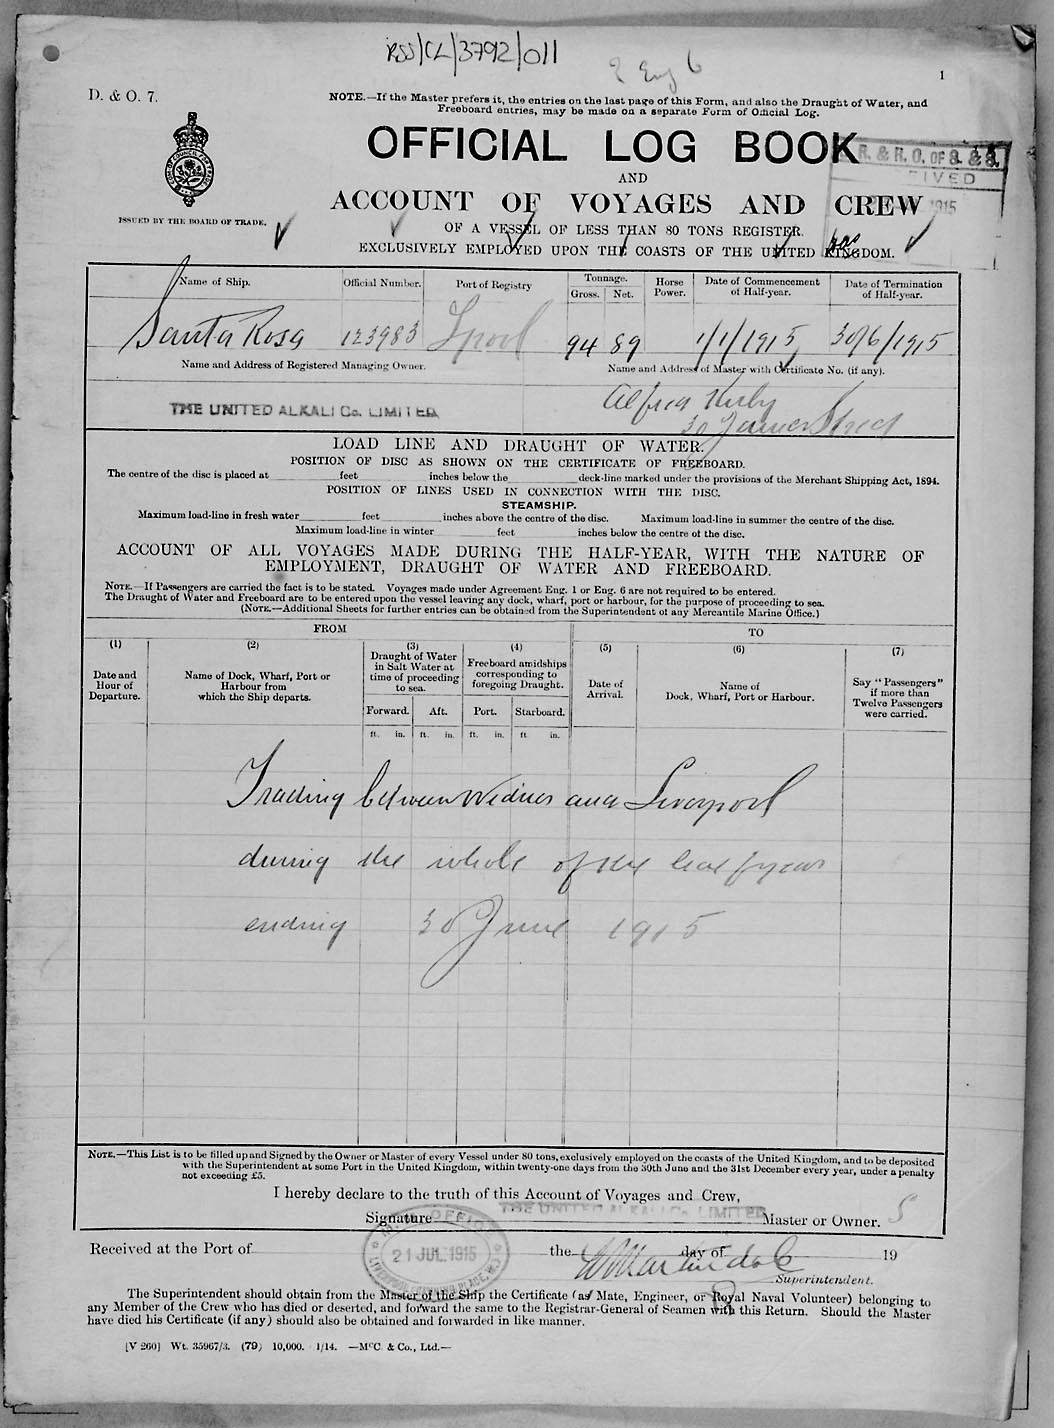 RSS/CL/3792/011
? Eng 6
1
D. & O. 7.
NOTE.—If the Master prefers it, the entries on the last page of this Form, and also the Draught of Water, and
Freeboard entries, may be made on a separate Form of Official Log.
OFFICIAL LOG BOOK
AND
ACCOUNT OF VOYAGES AND CREW
OF A VESSEL OF LESS THAN 80 TONS REGISTER.
EXCLUSIVELY EMPLOYED UPON THE COASTS OF THE UNITED KINGDOM.
ISSUED BY THE BOARD OF TRADE.
R. & R. O. OF S. & S.
1915
Name of Ship. Official Number. Port of Registry Tonnage. Gross. Net. Horse Power. Date of Commencement of Half-year. Date of Termination of Half-year.
Santa Rosa 123983 Lpool 94 89 1/1/1915 30/6/1915
Name and Address of Registered Managing Owner. Name and Address of Master with Certificate No. (if any).
THE UNITED ALKALI Co. LIMITED
Alfred Kirby
30 Street
LOAD LINE AND DRAUGHT OF WATER.
POSITION OF DISC AS SHOWN ON THE CERTIFICATE OF FREEBOARD.
The centre of the disc is placed at feet inches below the deck-line marked under the provisions of the Merchant Shipping Act, 1894.
POSITION OF LINES USED IN CONNECTION WITH THE DISC.
STEAMSHIP.
Maximum load-line in fresh water feet inches above the centre of the disc. Maximum load-line in summer the centre of the disc.
Maximum load-line in winter feet inches below the centre of the disc.
ACCOUNT OF ALL VOYAGES MADE DURING THE HALF-YEAR, WITH THE NATURE OF
EMPLOYMENT, DRAUGHT OF WATER AND FREEBOARD.
NOTE.—If Passengers are carried the fact is to be stated. Voyages made under Agreement Eng. 1 or Eng. 6 are not required to be entered.
The Draught of Water and Freeboard are to be entered upon the vessel leaving any dock, wharf, port or harbour, for the purpose of proceeding to sea.
(NOTE.—Additional Sheets for further entries can be obtained from the Superintendent of any Mercantile Marine Office.)
FROM TO
(1) (2) (3) (4) (5) (6) (7)
Date and Hour of Departure.
Name of Dock, Wharf, Port or Harbour from which the Ship departs.
Draught of Water in Salt Water at time of proceeding to sea.
Freeboard amidships corresponding to foregoing Draught.
Date of Arrival.
Name of Dock, Wharf, Port or Harbour.
Say "Passengers" if more than Twelve Passengers were carried.
Forward. Aft. Port. Starboard.
ft. in. ft. in. ft. in. ft. in.
Trading between Widnes and Liverpool
during the whole of the half year
ending 30 June 1915
NOTE.—This List is to be filled up and Signed by the Owner or Master of every Vessel under 80 tons, exclusively employed on the coasts of the United Kingdom, and to be deposited
with the Superintendent at some Port in the United Kingdom, within twenty-one days from the 30th June and the 31st December every year, under a penalty
not exceeding £5.
I hereby declare to the truth of this Account of Voyages and Crew,
THE UNITED ALKALI Co. LIMITED
Signature Master or Owner.
M.M. OFFICE
21 JUL. 1915
Received at the Port of the day of 19
Superintendent.
The Superintendent should obtain from the Master of the Ship the Certificate (as Mate, Engineer, or Royal Naval Volunteer) belonging to
any Member of the Crew who has died or deserted, and forward the same to the Registrar-General of Seamen with this Return. Should the Master
have died his Certificate (if any) should also be obtained and forwarded in like manner.
[V 260] Wt. 35967/3. (79) 10,000. 1/14. —McC. & Co., Ltd.—